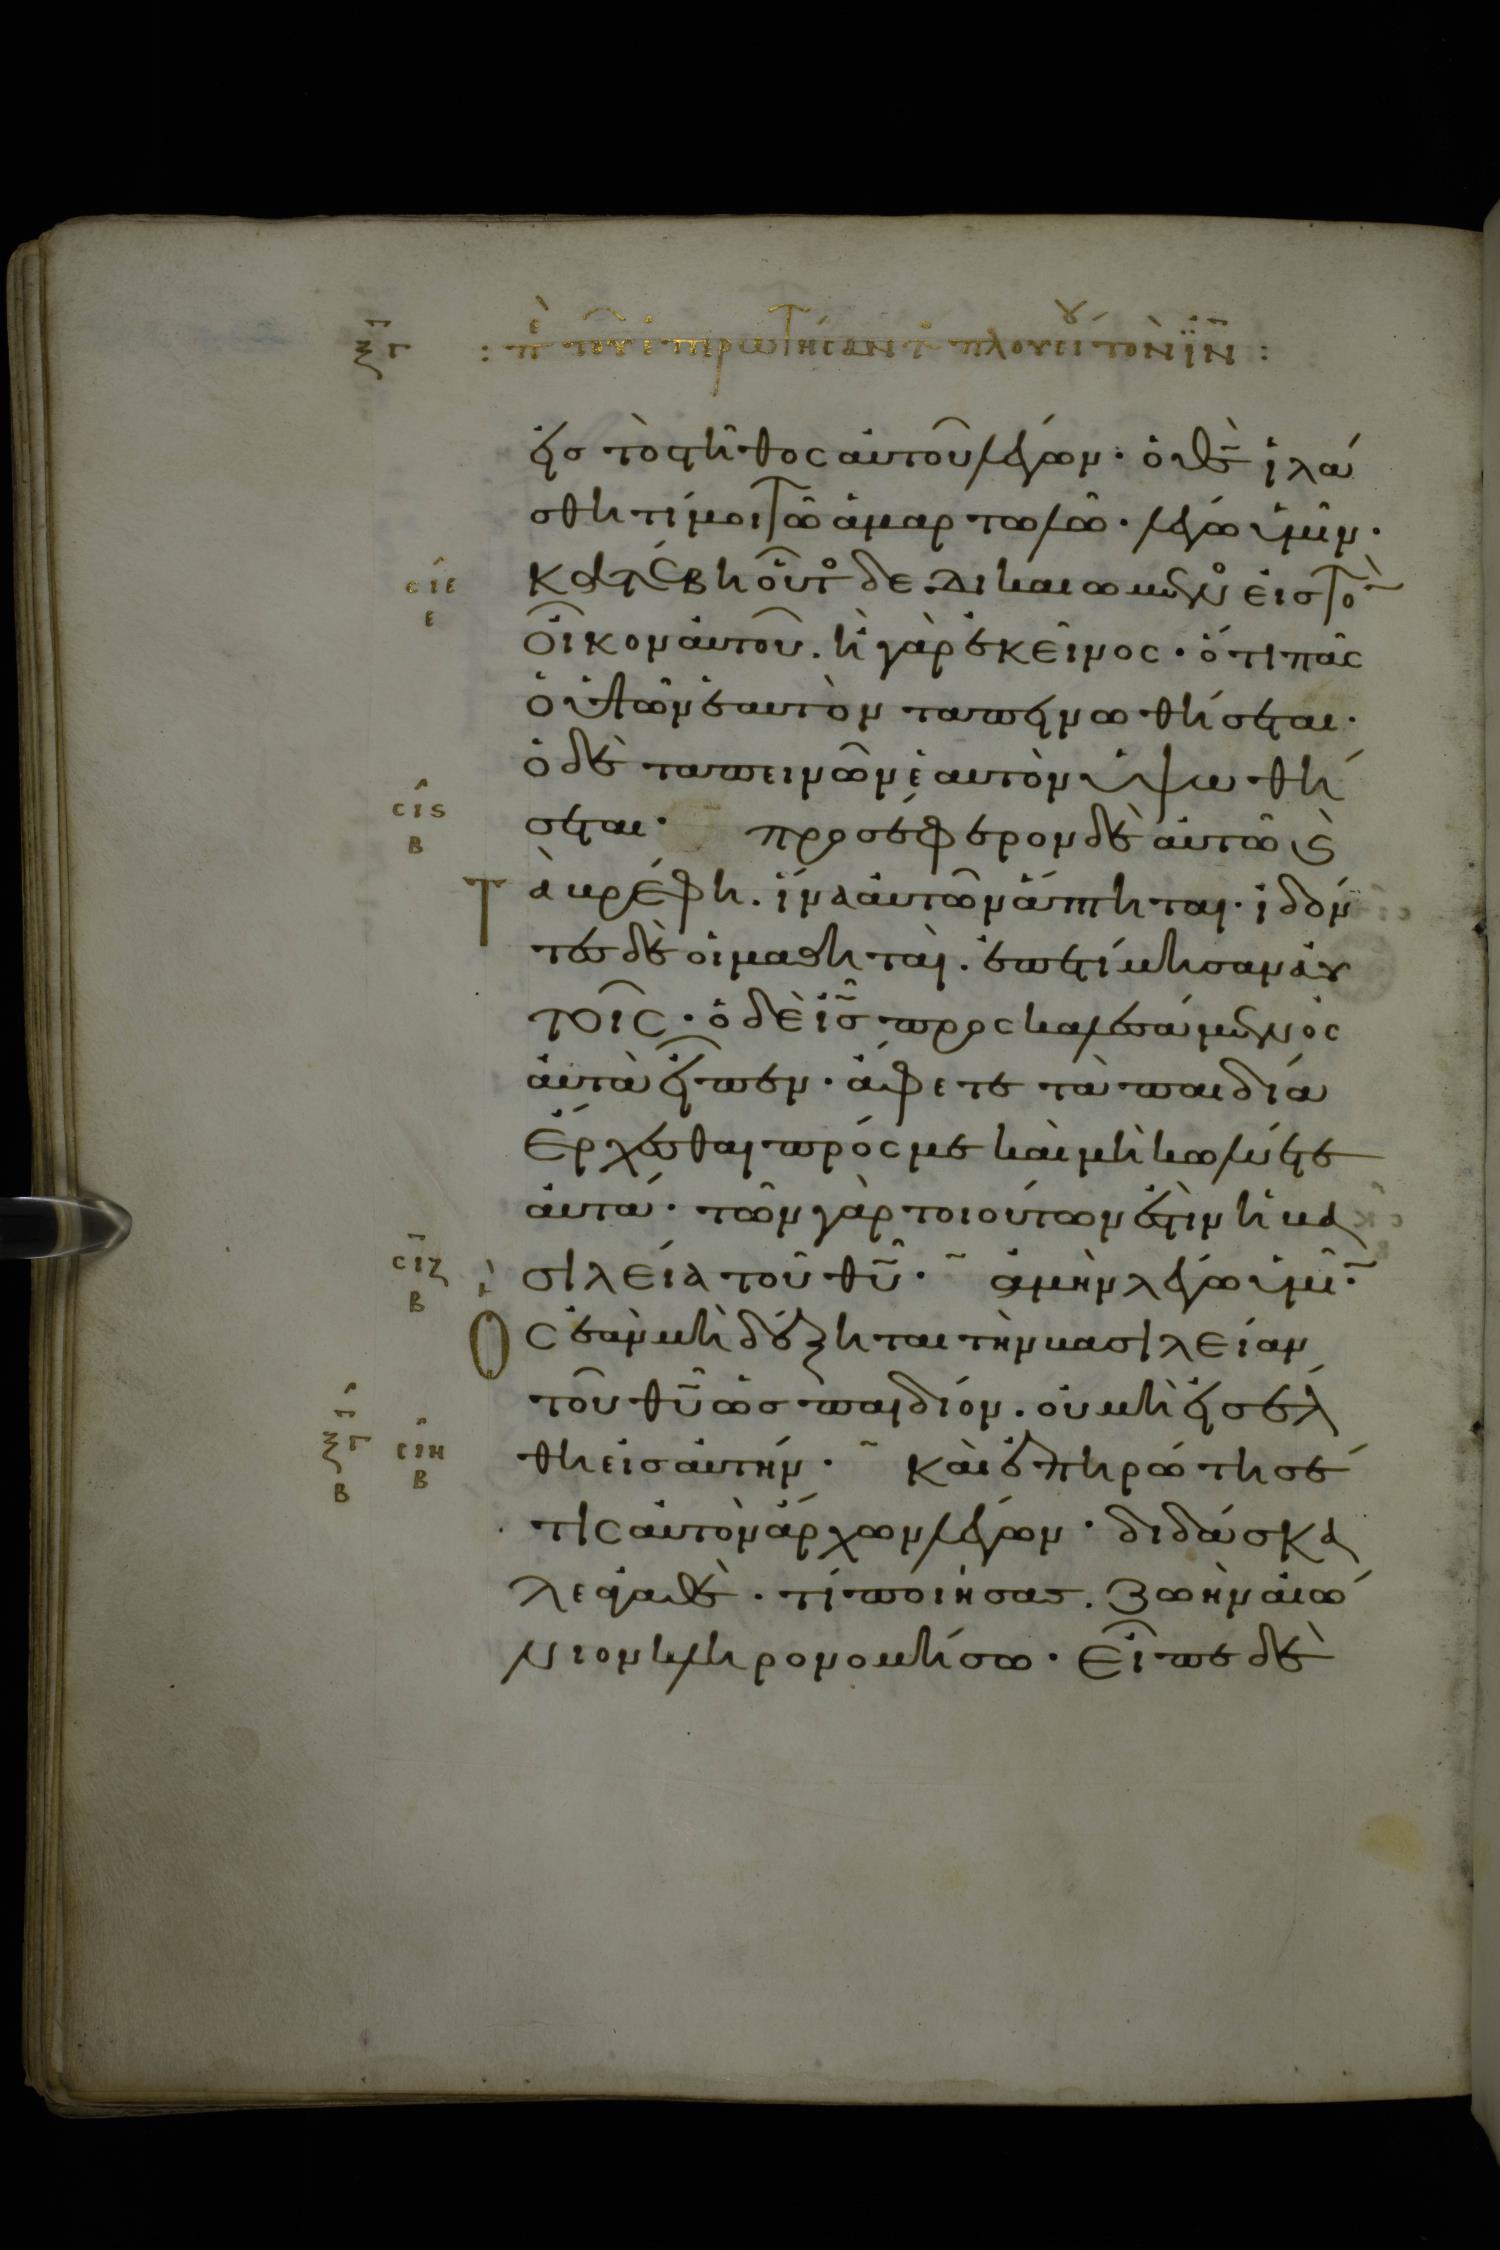 ξγ
: πε τοῦ ἐπερωτήσαντ πλουσίου τὸν ἰν :
εἰς τὸ στῆθος αὐτοῦ λέγων· ὁ θς ἱλά
σθητί μοι τῶ ἁμαρτωλῶ· λέγω ὑμῖν·
σιε
ε
κατέβη οὗτος δεδικαιωμένος εἰς τὸ
οἶκον αὐτοῦ. ἢ γὰρ ἐκεῖνος· ὅτι πᾶς
ὁ ὑψῶν ἑαυτὸν ταπεινωθήσεται·
ὁ δὲ ταπεινῶν ἑαυτὸν ὑψωθή
σις
β
σεται· προσέφερον δὲ αὐτῶ καὶ
Τὰ βρέφη. ἵνα αὐτῶν ἅπτηται· ἰδόν
τες δὲ οἱ μαθηταὶ. ἐπετίμησαν αὐ
τοῖς· ὁ δὲ ἰς προσκαλεσάμενος
αὐτὰ εἶπεν· ἄφετε τὰ παιδία
ἔρχεσθαι πρός με καὶ μὴ κωλύετε
αὐτά· τῶν γὰρ τοιούτων ἐστὶν ἡ βα
σιζ
β
σιλεία τοῦ θυ· ἀμὴν λέγω ὑμῖ·
Ος ἐὰν μὴ δέξηται τὴν βασιλείαν
τοῦ θυ ὡς παιδίον. οὐ μὴ εἰσέλ
ξγ
β
σιη
β
θη εἰς αὐτήν· καὶ ἐπηρώτησέ
τις αὐτὸν ἄρχων λέγων· διδάσκα
λε ἀγαθὲ· τί ποιήσας. ζωὴν αἰώ
νιον κληρονομήσω· εἶπε δὲ